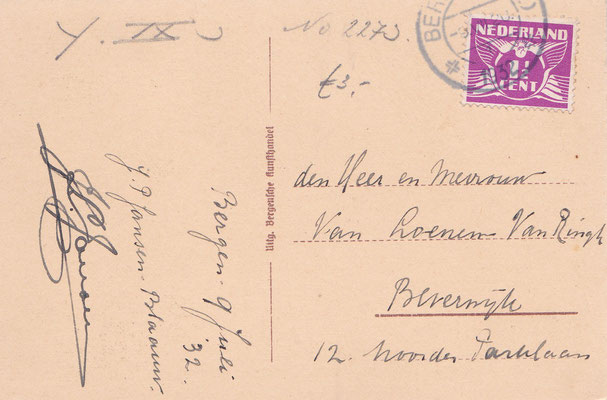 C XI Y.
No 2273.
€3,-
BER
1932
NEDERLAND
2½
CENT
Uitg. Bergensche Kunsthandel
den Heer en Mevrouw
Van Loenen-Van Ringh
Beverwijk
12. Noorder Parklaan
Bergen - 9 Juli
32.
J. P. Jansen-Blaauw.